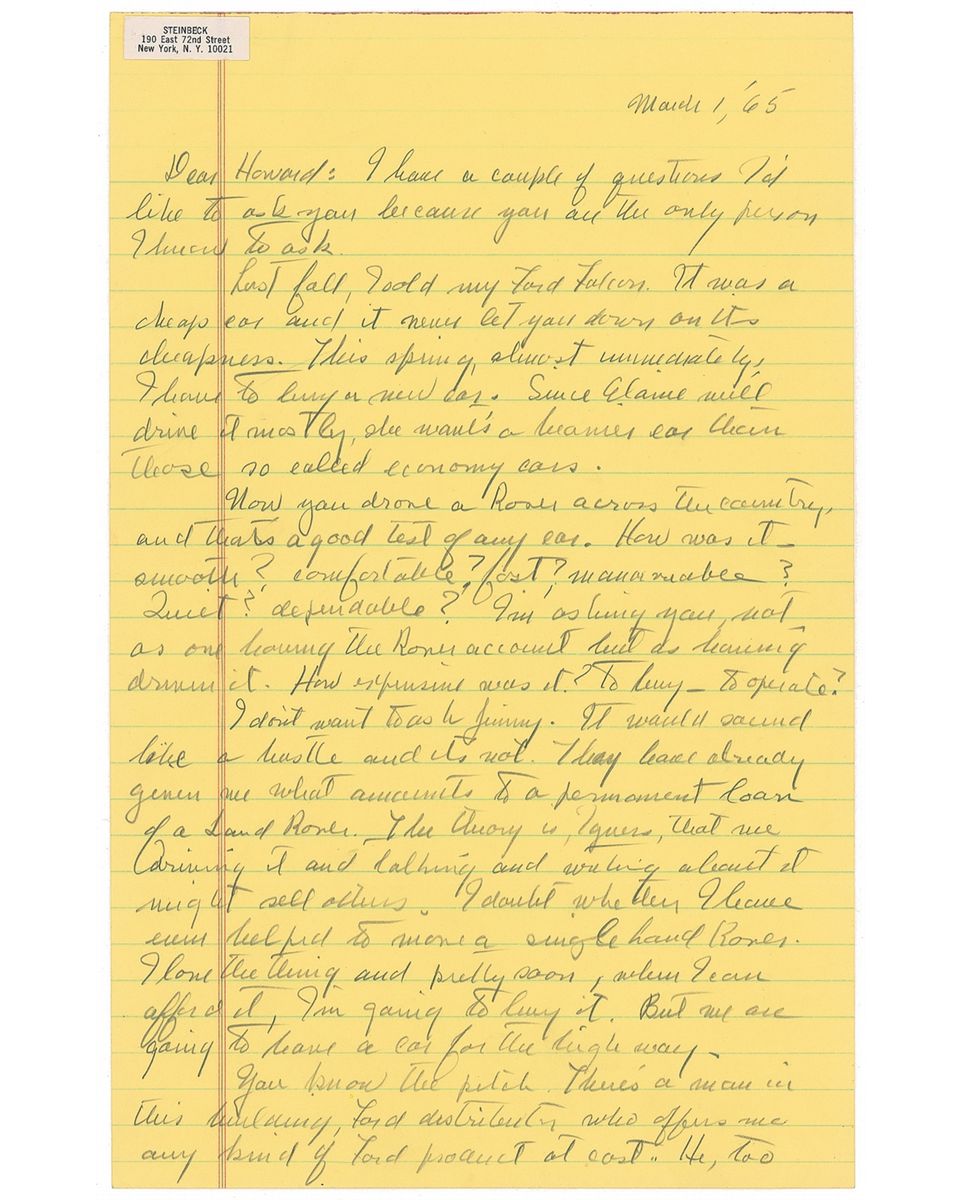 STEINBECK
190 East 72nd Street
New York, N. Y. 10021
March 1, '65
Dear Howard: I have a couple of questions I'd
like to ask you because you are the only person
I know to ask.
Last fall, I sold my Ford Falcon. It was a
cheap car and it never let you down on its
cheapness. This spring, almost immediately,
I have to buy a new car. Since Elaine will
drive it mostly, she want's a heavier car than
those so called economy cars.
Now you drove a Rover across the country,
and that's a good test of any car. How was it —
smooth? comfortable? fast? manageable?
Quiet? dependable? I'm asking you, not
as one having the Rover account but as having
driven it. How expensive was it? To buy — to operate?
I don't want to ask Jimmy. It would sound
like a hustle and its not. They have already
given me what amounts to a permanent loan
of a Land Rover. The theory is, I guess, that me
driving it and talking and writing about it
might sell others. I doubt whether I have
even helped to move a single Land Rover.
I love the thing and pretty soon, when I can
afford it, I'm going to buy it. But we are
going to have a car for the high way.
You know the pitch. There's a man in
this building, Ford distributer who offers me
any kind of Ford product at cost.. He, too